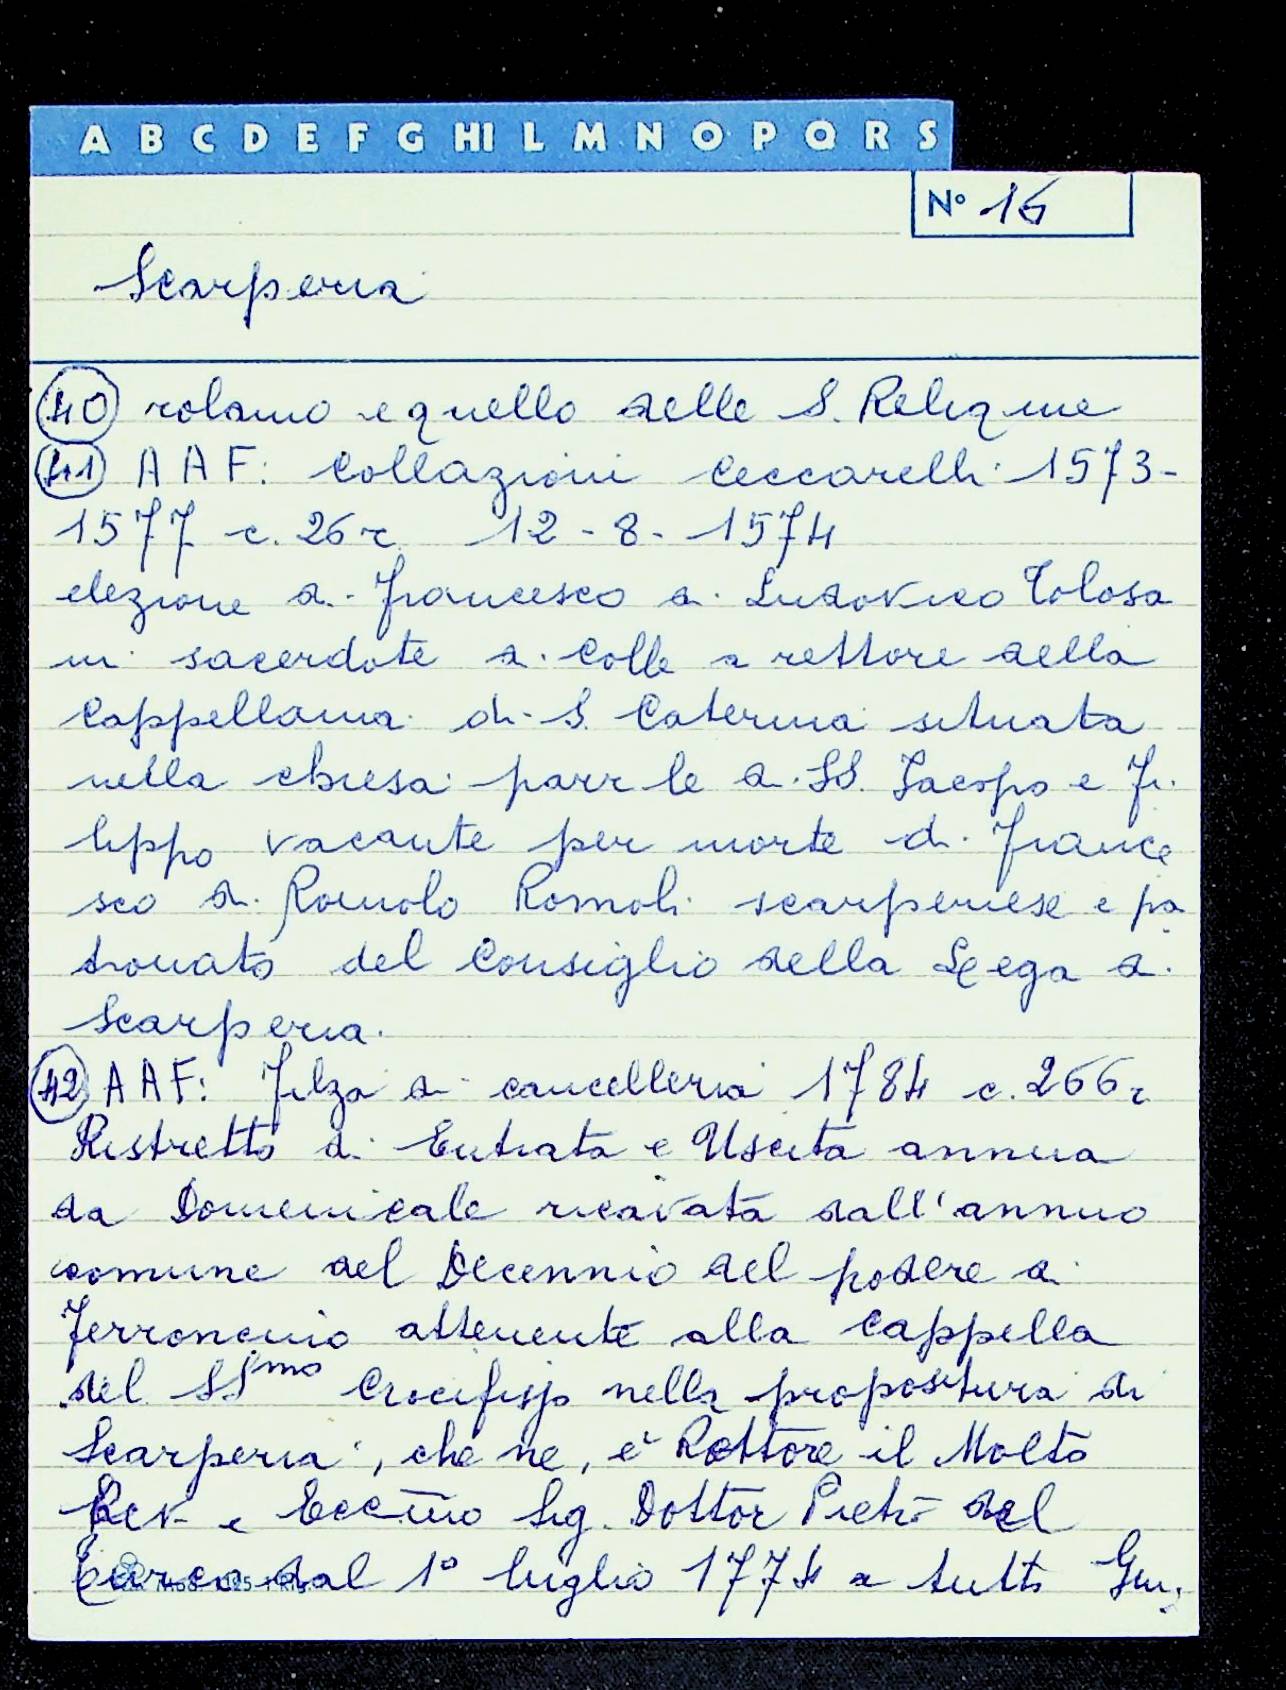 A B C D E F G HI L M N O P Q R S
Nº 16
Scarperia
40 rolamo e quello delle S. Reliquie
41 AAF: Collazioni Ceccarelli 1573-
1577 c. 26r 12-8-1574
elezione di Francesco di Ludovico Tolosa
ni sacerdote di Colle a rettore della
Cappellania di S. Caterina situata
nella chiesa parr le di SS. Jacopo e Fi
lippo vacante per morte di France
sco di Romolo Romoli scarperiese e pa
tronato del Consiglio della Lega di
Scarperia.
42 AAF: Filza di cancelleria 1784 c. 266r
Ristretto di Entrata e Uscita annua
da Domenicale ricavata dall'annuo
comune del Decennio del podere di
Ferroncino attenente alla Cappella
del SSmo Crocifisso nella propositura di
Scarperia, che ne, è Rettore il Molto
Rev e Ecc.mo Sig. Dottor Pietro del
dal 1º luglio 1774 a tutto Giu.